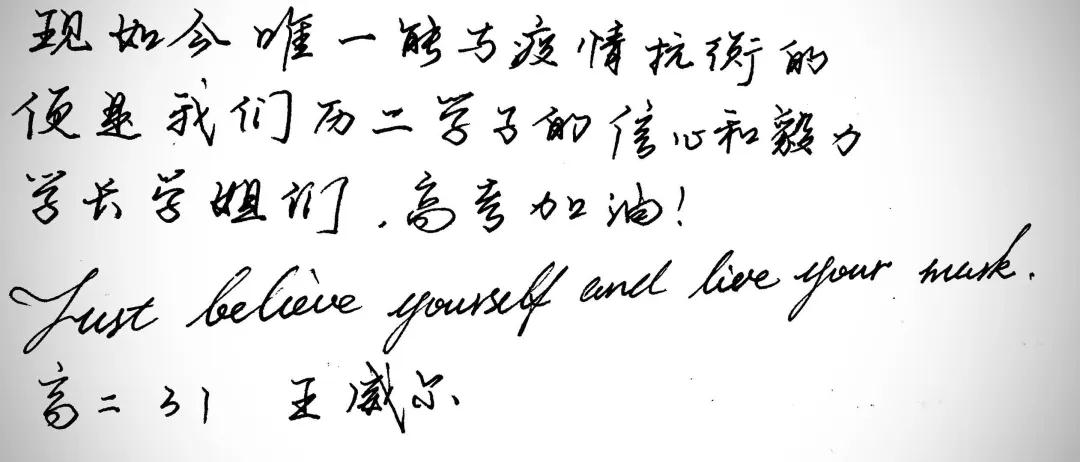 现如今唯一能与疫情抗衡的
便是我们历二学子的信心和毅力
学长学姐们,高考加油!
Just believe yourself and live your musk.
高二31 王威尔